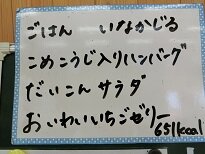 ごはん いなかじる
こめこうじ入りハンバーグ
だいこんサラダ
おいわいいちごゼリー
651kcal